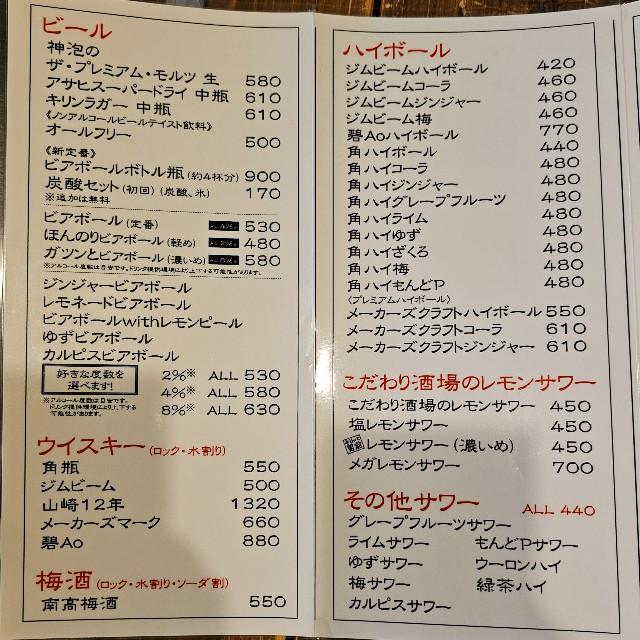 ビール
神泡の
ザ・プレミアム・モルツ 生 580
アサヒスーパードライ 中瓶 610
キリンラガー 中瓶 610
《ノンアルコールビールテイスト飲料》
オールフリー 500
《新定番》
ビアボールボトル瓶(約4杯分) 900
炭酸セット(初回)(炭酸、氷) 170
※追加は無料
ビアボール(定番) 530
ほんのりビアボール(軽め) 480
ガツンとビアボール(濃いめ) 580
※アルコール度数は目安です。ドリンク提供環境により上下する可能性があります。
ジンジャービアボール
レモネードビアボール
ビアボールwithレモンピール
ゆずビアボール
カルピスビアボール
好きな度数を
選べます!
※アルコール度数は目安です。
ドリンク提供環境により上下する
可能性があります。
2%※ ALL 530
4%※ ALL 580
8%※ ALL 630
ウイスキー(ロック・水割り)
角瓶 550
ジムビーム 500
山崎12年 1320
メーカーズマーク 660
碧Ao 880
梅酒(ロック・水割り・ソーダ割)
南高梅酒 550
ハイボール
ジムビームハイボール 420
ジムビームコーラ 460
ジムビームジンジャー 460
ジムビーム梅 460
碧Aoハイボール 770
角ハイボール 440
角ハイコーラ 480
角ハイジンジャー 480
角ハイグレープフルーツ 480
角ハイライム 480
角ハイゆず 480
角ハイざくろ 480
角ハイ梅 480
角ハイもんどP 480
(プレミアムハイボール)
メーカーズクラフトハイボール 550
メーカーズクラフトコーラ 610
メーカーズクラフトジンジャー 610
こだわり酒場のレモンサワー
こだわり酒場のレモンサワー 450
塩レモンサワー 450
レモンサワー(濃いめ) 450
メガレモンサワー 700
その他サワー ALL 440
グレープフルーツサワー
ライムサワー もんどPサワー
ゆずサワー ウーロンハイ
梅サワー 緑茶ハイ
カルピスサワー